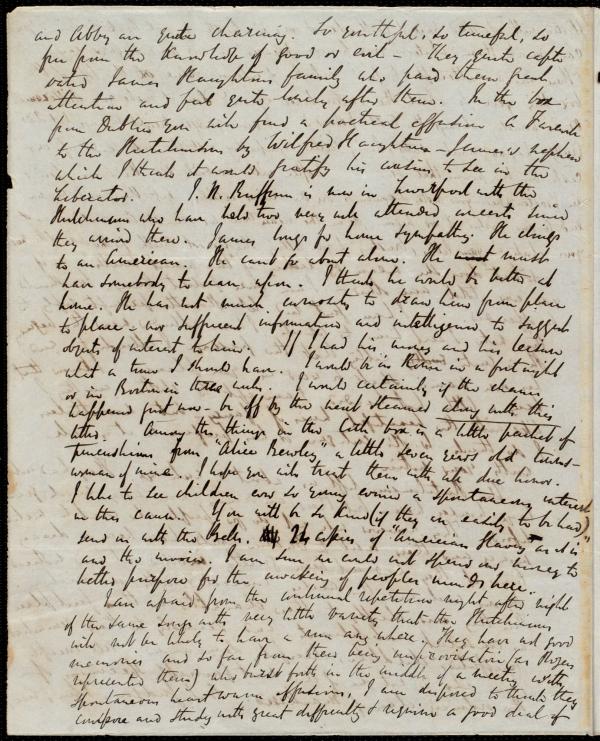 and Abby are quite charming. So youthful, so tuneful, so
free from the knowledge of good or evil - they quite capti
vated James Haughtons family who paid them great
attention and feel quite lonely after them. In the box
from Dublin you will find a poetical effusion a Farewell
to the Hutchinsons by Wilfred Haughton - James's nephew
which I think it would gratify his cousins to see in the
Liberator. J. N. Buffum is now in Liverpool with the
Hutchinsons who have held two very well attended concerts since
they arrived there. James longs for home sympathy. He clings
to an American. He cant go about alone. He must
have somebody to lean upon. I think he would be better at
home. He has not much curiosity to draw him from place
to place - nor sufficient information and intelligence to suggest
objects of interest to him. If I had his money and his leisure
what a time I should have. I would be in Rome in a fortnight
or in Boston in three weeks. I would certainly if the chance
happened just now - be off by the next steamer along with this
letter. Among the things in the Cork box is a little packet of
pincushions from "Alice Bewley" a little seven years old towns-
woman of mine. I hope you will treat them with all due honor.
I like to see children ever so young evince a spontaneous interest
in this cause. You will be so kind (if they are easily to be had)
send us with the Bells. 24 copies of "American Slavery as it is"
and the invoice. I am sure we could not spend our money to
better purpose for the awaking of peoples minds here.
I am afraid from the continual repetition night after night
of the same songs with very little variety that the Hutchinsons
will not be likely to have a run any where. They have not good
memories and so far from their being improvisatori (as Rogers
represented them) who burst forth in the middle of a meeting with
spontaneous heart warm effusions, I am disposed to think they
compose and study with great difficulty & require a good deal of